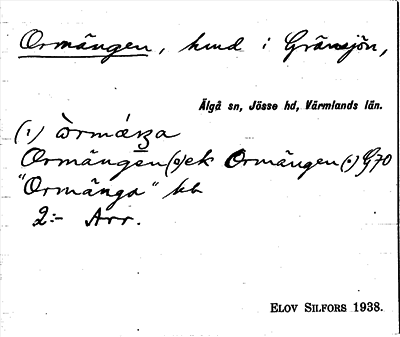 Ormängen, hmd i Gränsjön,
Älgå sn, Jösse hd, Värmlands län.
(1)
Ormängen (0) ek Ormängen (0) G70
"Ormänga" bb
2:- Arr.
ELOV SILFORS 1938.